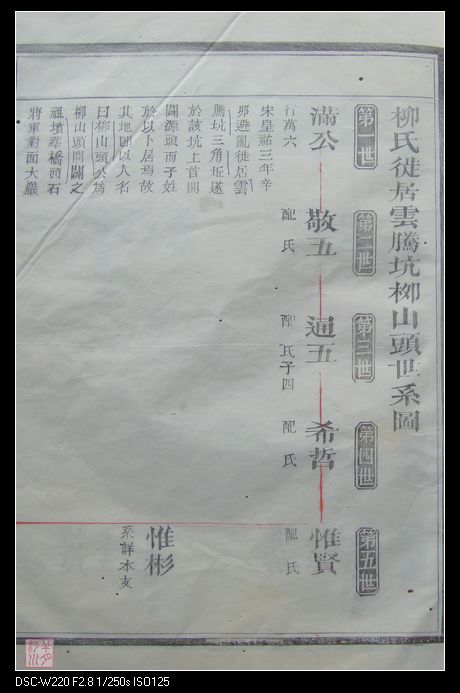 柳氏徙居雲騰坑柳山頭世系圖
第一世
第二世
第三世
第四世
第五世
滿公
敬五
通五
希哲
惟賢
行萬六
配 氏
配 氏子四
配 氏
配 氏
宋皇祐三年辛
夘避亂徙居雲
騰坑三角坵遂
於該坑上首開
闢源頭而子姓
於以卜居焉故
其地卽以人名
曰柳山頭公爲
柳山頭開闢之
祖墳葬橋頭石
將軍對面大嚴
惟彬
系詳本支
DSC-W220 F2.8 1/250s ISO125